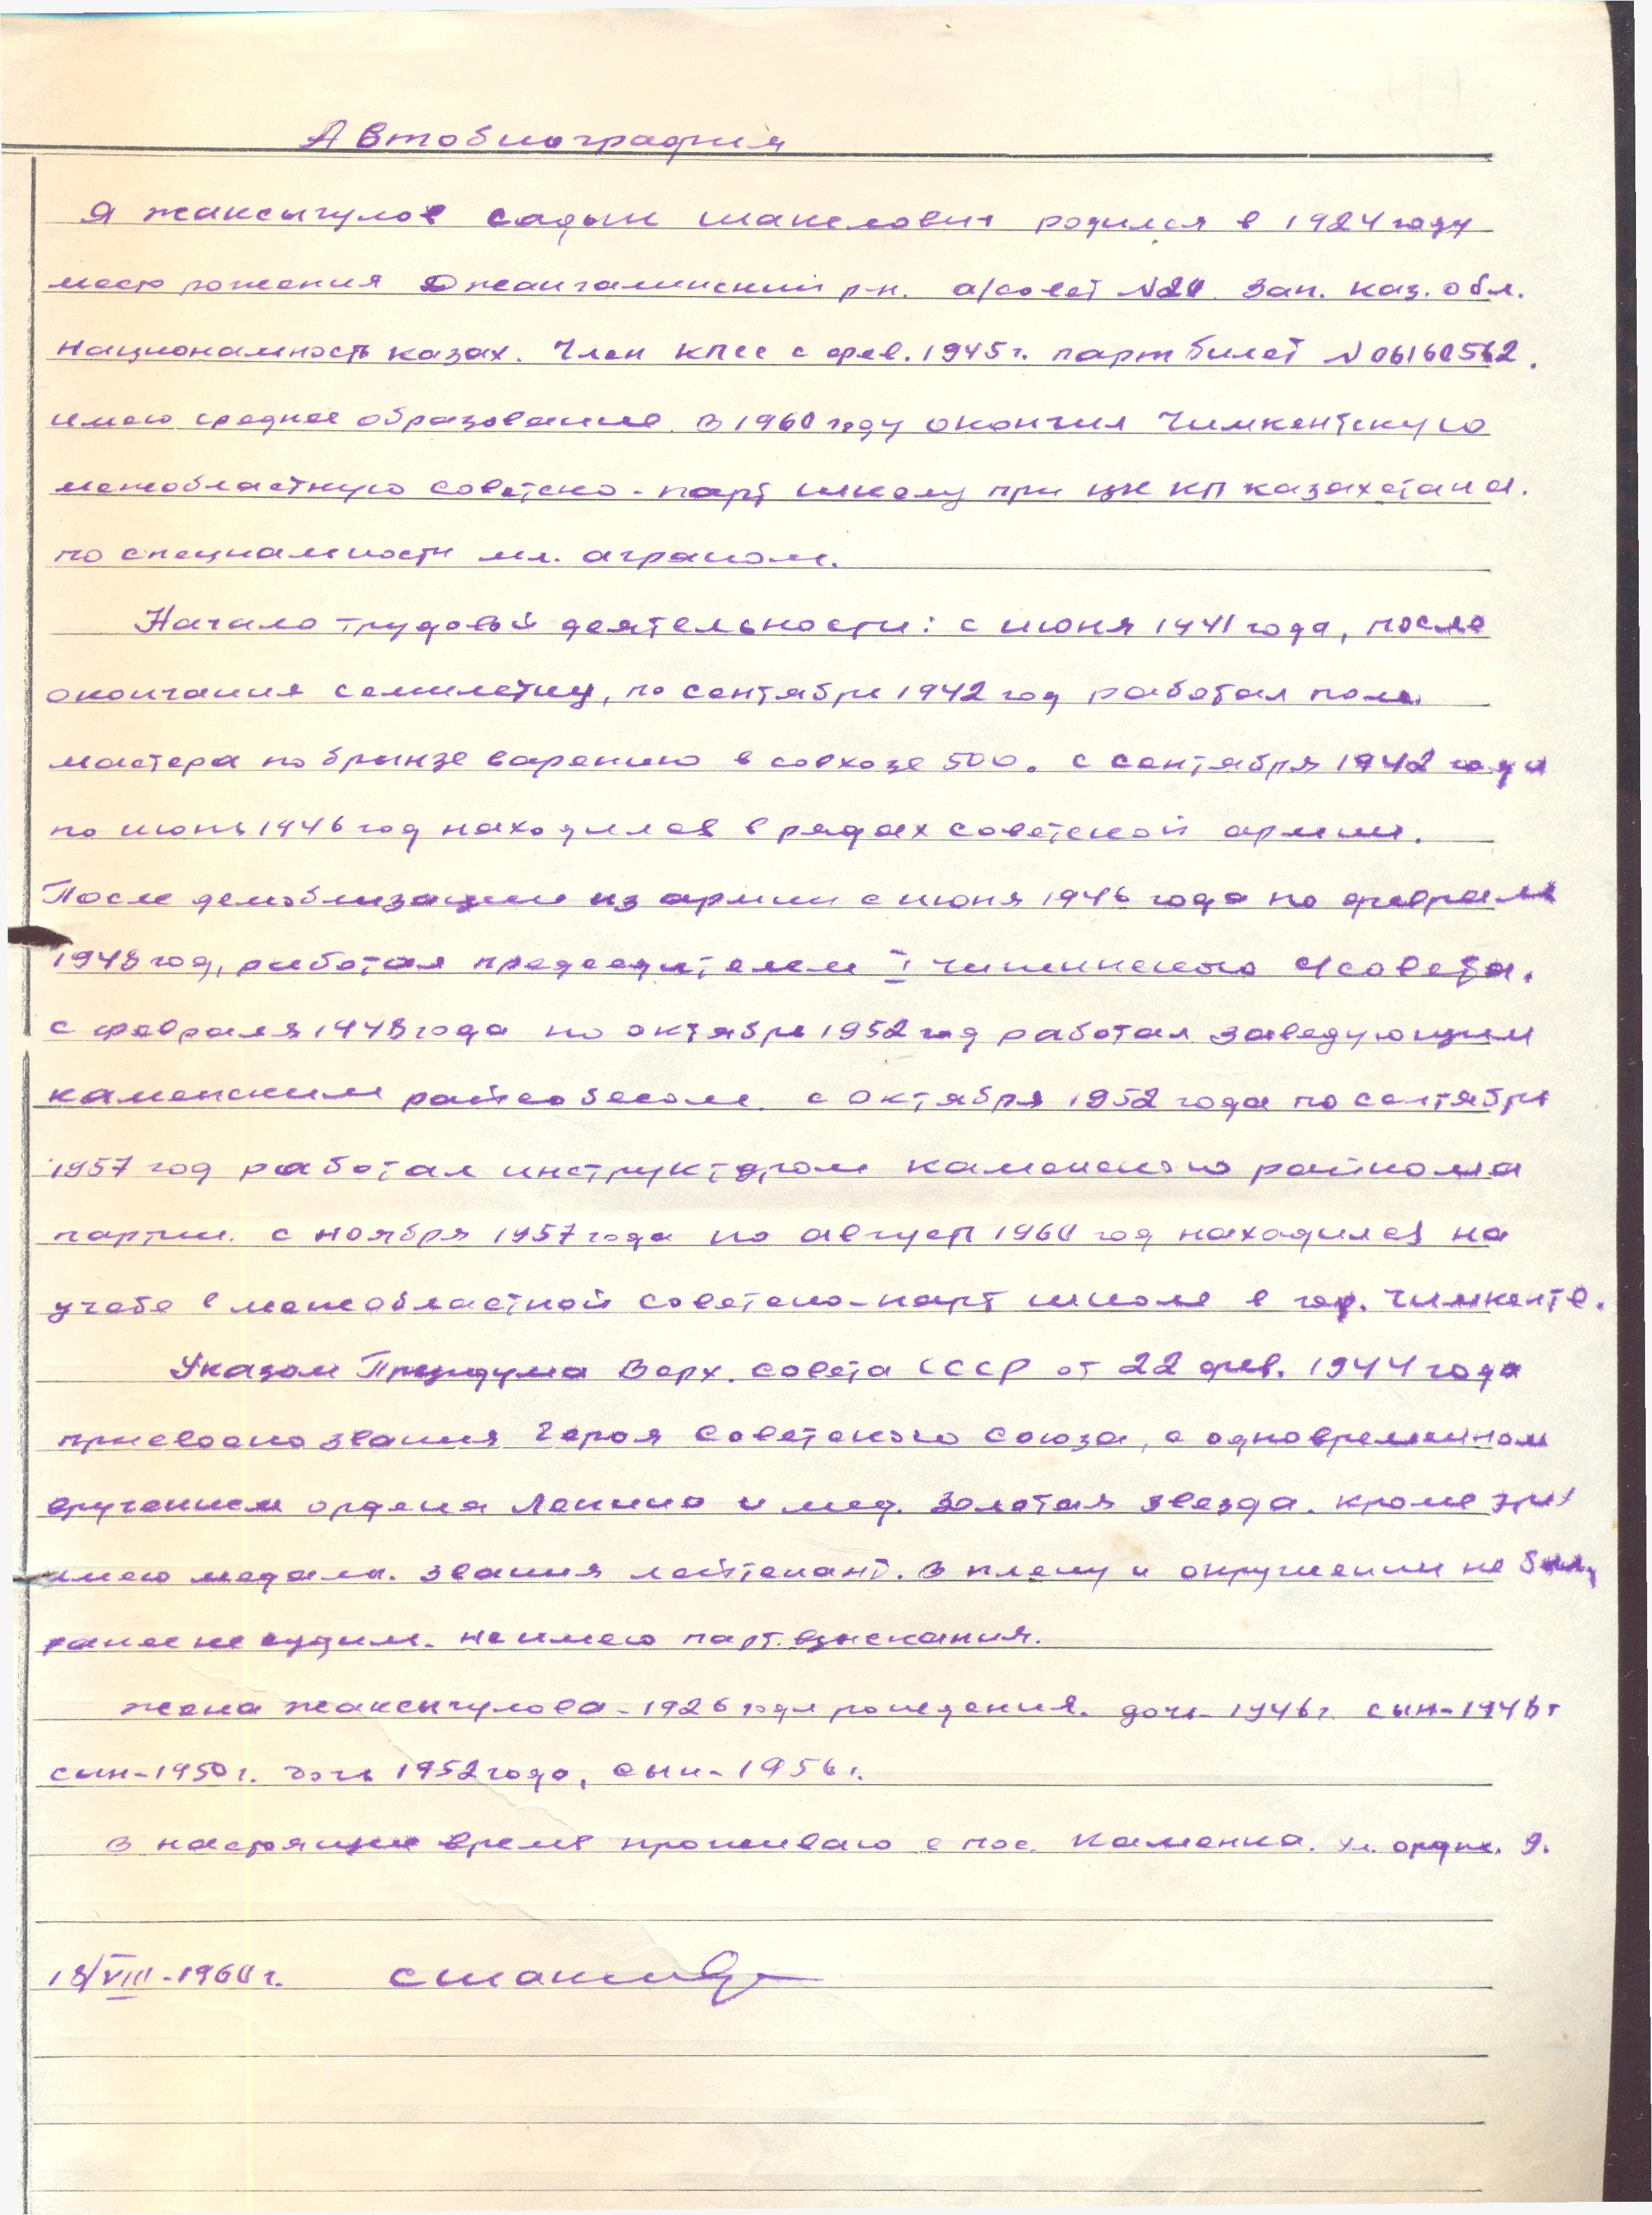 Автобиография
Я Жаксыгулов Садык Шакелович родился в 1924 году
место рожения Джангалинский р-н. а/совет №20. Зап. Каз. обл.
Национальность казах. Член КПСС с фев. 1945 г. партбилет №06160562.
имею среднее образование. В 1960 году окончил Чимкентскую
межобластную советско-парт школу при ЦК КП Казахстана.
по специальности мл. аграном.
Начало трудовой деятельности: с июня 1941 года, после
окончания семилетку, по сентябрь 1942 год работал пом.
мастера по брынзе варению в совхозе 500. с сентября 1942 года
по июнь 1946 год находился в рядах советской армии.
После демоблизации из армии с июня 1946 года по февраль
1948 год, работал председателем I Чижинского с/совета.
с февраля 1948 года по октябрь 1952 год работал заведующим
каменским райсобесом. с октября 1952 года по сентябрь
1957 год работал инструктором каменского райкома
партии. с ноября 1957 года по август 1960 год находился на
учебе в межобластной советско-парт школе в гор. Чимкенте.
Указом Президума Верх. Совета СССР от 22 фев. 1944 года
присвоено звания Героя Советского Союза, с одновременном
вручением ордена Ленина и мед. Золотая звезда. кроме этих
имею медали. звания лейтенант. В плену и окружении не был,
ранее не судим. не имею парт. взыскания.
жена Жаксыгулова - 1926 года рождения. дочь - 1946 г. сын - 1948 г
сын - 1950 г. дочь 1952 года, сын - 1956 г.
в настоящие время проживаю в пос. Каменка. ул. ордж. 9.
18/VIII-1960 г.